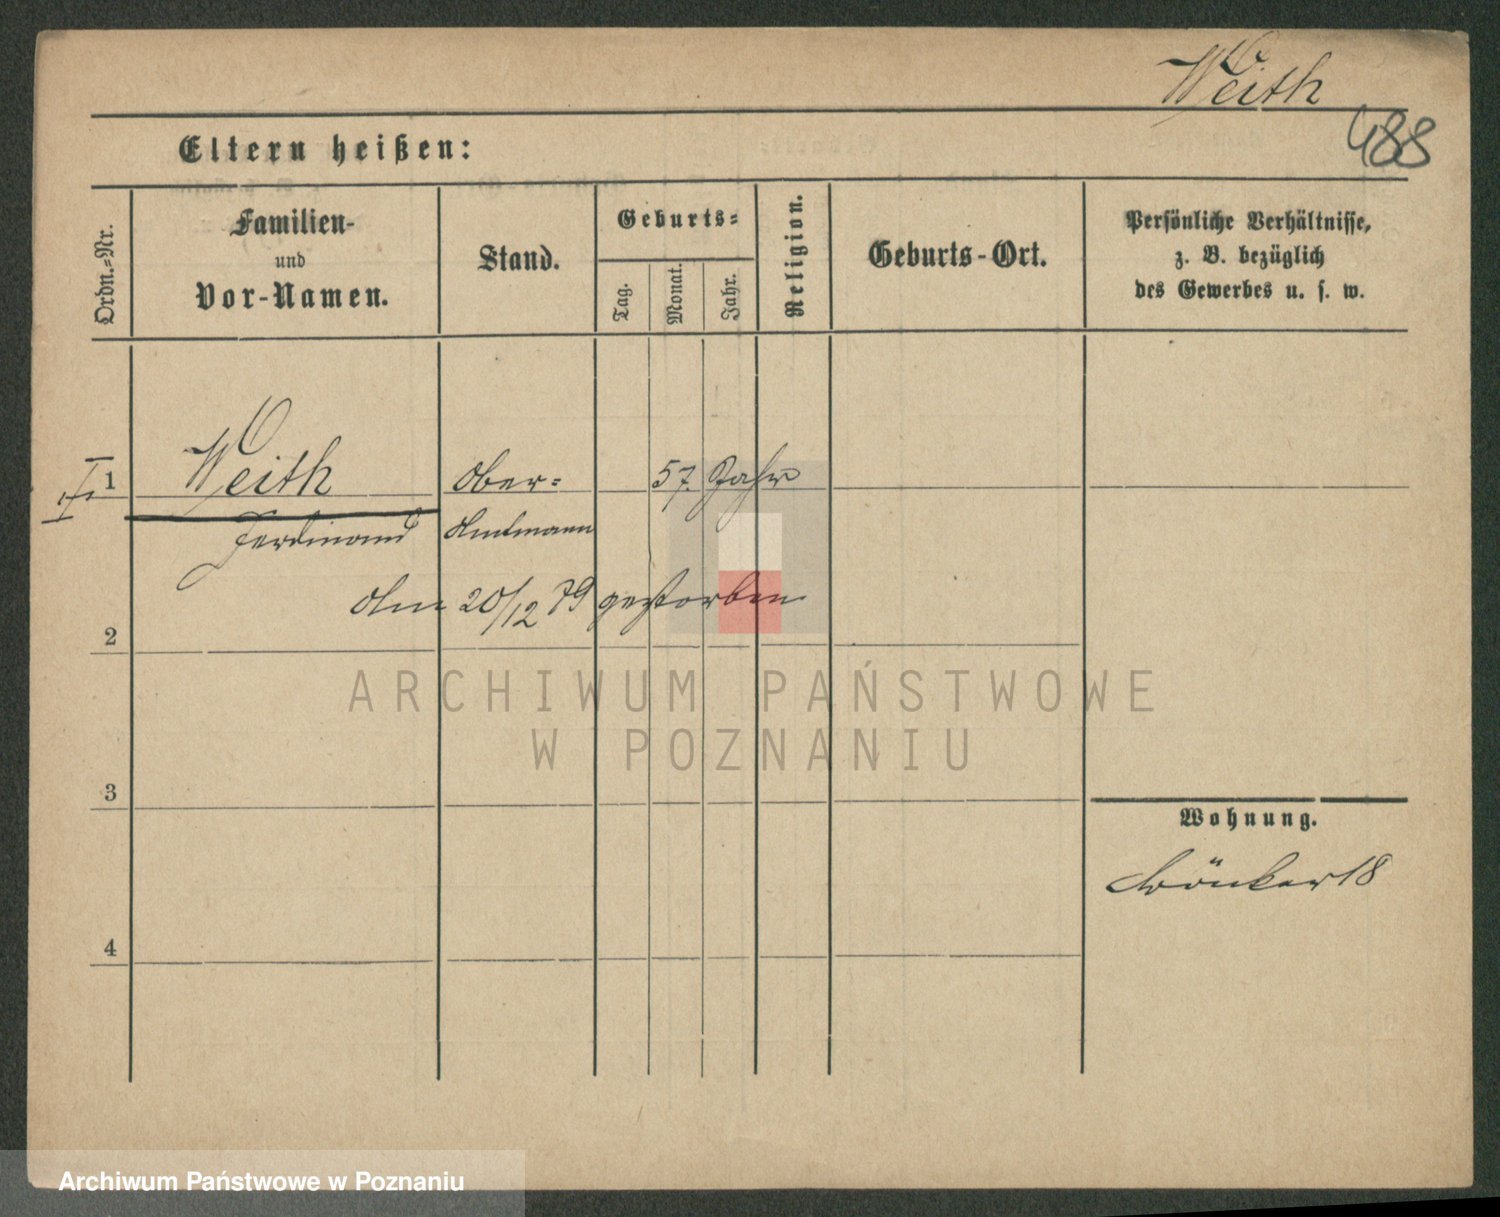 Weith
488
Eltern heißen:
Ordn.-Nr.
Familien-
und
Vor-Namen.
Stand.
Geburts-
Tag.
Monat.
Jahr.
Religion.
Geburts-Ort.
Persönliche Verhältnisse,
z. B. bezüglich
des Gewerbes u. s. w.
1
Weith
Ober-
57 Jahr
Ferdinand
Amtmann
Am 20/12 79 gestorben
2
ARCHIWUM PAŃSTWOWE
W POZNANIU
3
Wohnung.
18
4
Archiwum Państwowe w Poznaniu